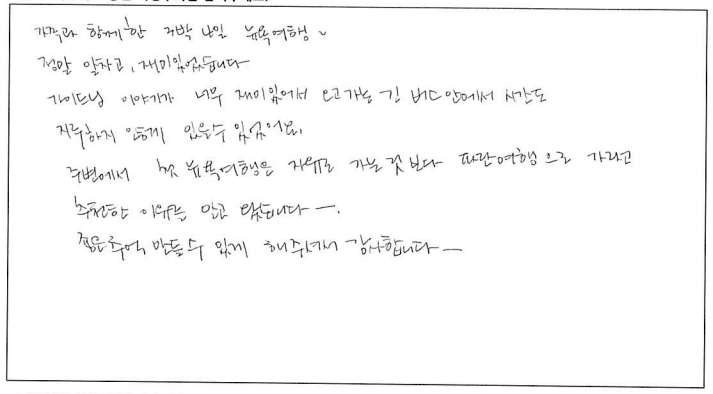 가족과 함께한 3박 4일 뉴욕여행~
정말 알차고, 재미있었습니다
가이드님 이야기가 너무 재미있어서 오고가는 긴 버스안에서 시간도
지루하지 않게 있을수 있었어요.
주변에서 첫 뉴욕여행은 자유로 가는것 보다 패키지여행으로 가라고
추천한 이유를 알고 갑니다ㅡ.
좋은추억 만들수 있게 해주셔서 감사합니다ㅡ